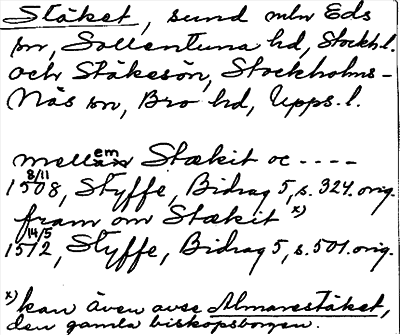 Stäket, sund mln Eds
sn, Sollentuna hd, Stockh.l.
och Stäksön, Stockholms-
Näs sn, Bro hd, Upps. l.
mellem Stækit oc ----
8/11 1508, Styffe, Bidrag 5, s. 324. orig.
fram om Stækit x)
14/5 1512, Styffe, Bidrag 5, s. 501. orig.
x) kan även avse Almarestäket,
den gamla biskopsborgen.